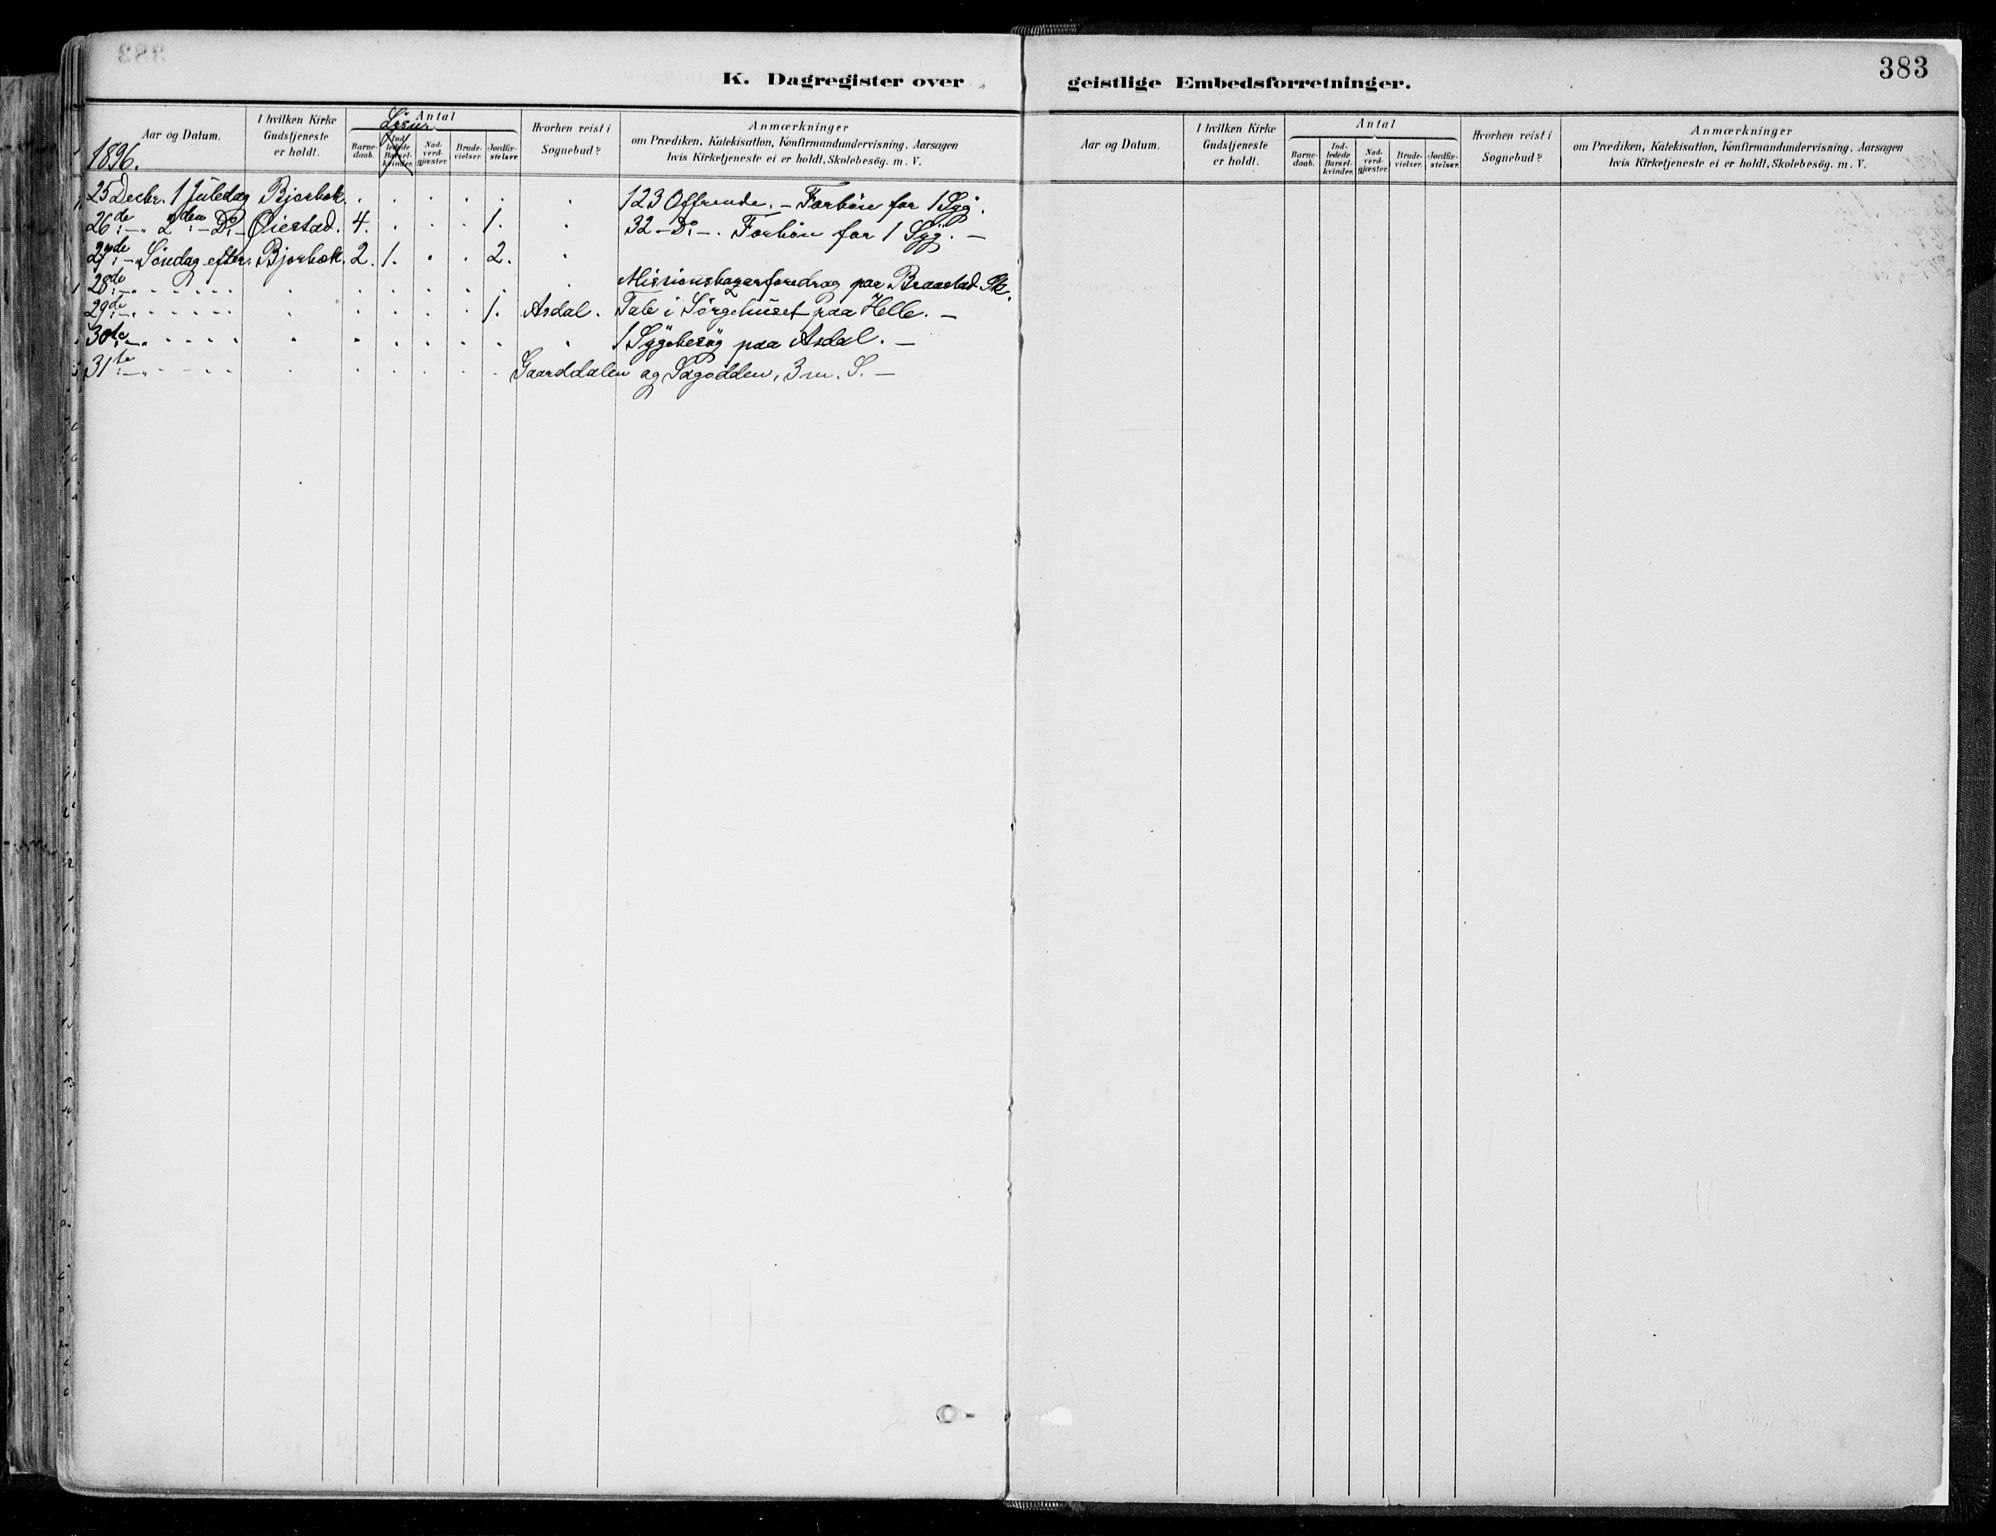 383
K. Dagregister over geistlige Embedsforretninger.
Aar og Datum.
I hvilken Kirke Gudstjeneste er holdt.
Antal
Barne-daab.
Ind-ledede Barsel-kvinder.
Nad-verd-gjæster.
Brude-vielser.
Jordfæ-stelser.
Hvorhen reist i Sognebud?
Anmærkninger
om Prædiken, Katekisation, Konfirmandundervisning, Aarsagen
hvis Kirketjeneste ei er holdt, Skolebesög. m. V.
1896.
25 Decbr. 1 Juledag Bjorbæk. . . . . . . 123 Offrende. – Forbön for 1 Syg.
26de:– „ 2den:– Do.– Øiestad. 4. . . . 1. . 32 – Do. –. Forbön for 1 Syg. –
27de:– „ Søndag efter. Bjorbæk. 2. 1. . . 2. .
28de:– „ . . . . . . . . . . . Missions foredrag paa Braastad Sk.
29de:– „ . . . . . . . . . 1. Asdal. Tale i Sörgehuset paa Helle. –
30te:– „ . . . . . . . . . . . 1 Sygebesøg paa Asdal. –
31te:– „ . . . . . . . . . . Gaarddalen og Sagodden, 3 m. S. –
Aar og Datum.
I hvilken Kirke Gudstjeneste er holdt.
Antal
Barne-daab.
Ind-ledede Barsel-kvinder.
Nad-verd-gjæster.
Brude-vielser.
Jordfæ-stelser.
Hvorhen reist i Sognebud?
Anmærkninger
om Prædiken, Katekisation, Konfirmandundervisning, Aarsagen
hvis Kirketjeneste ei er holdt, Skolebesög. m. V.